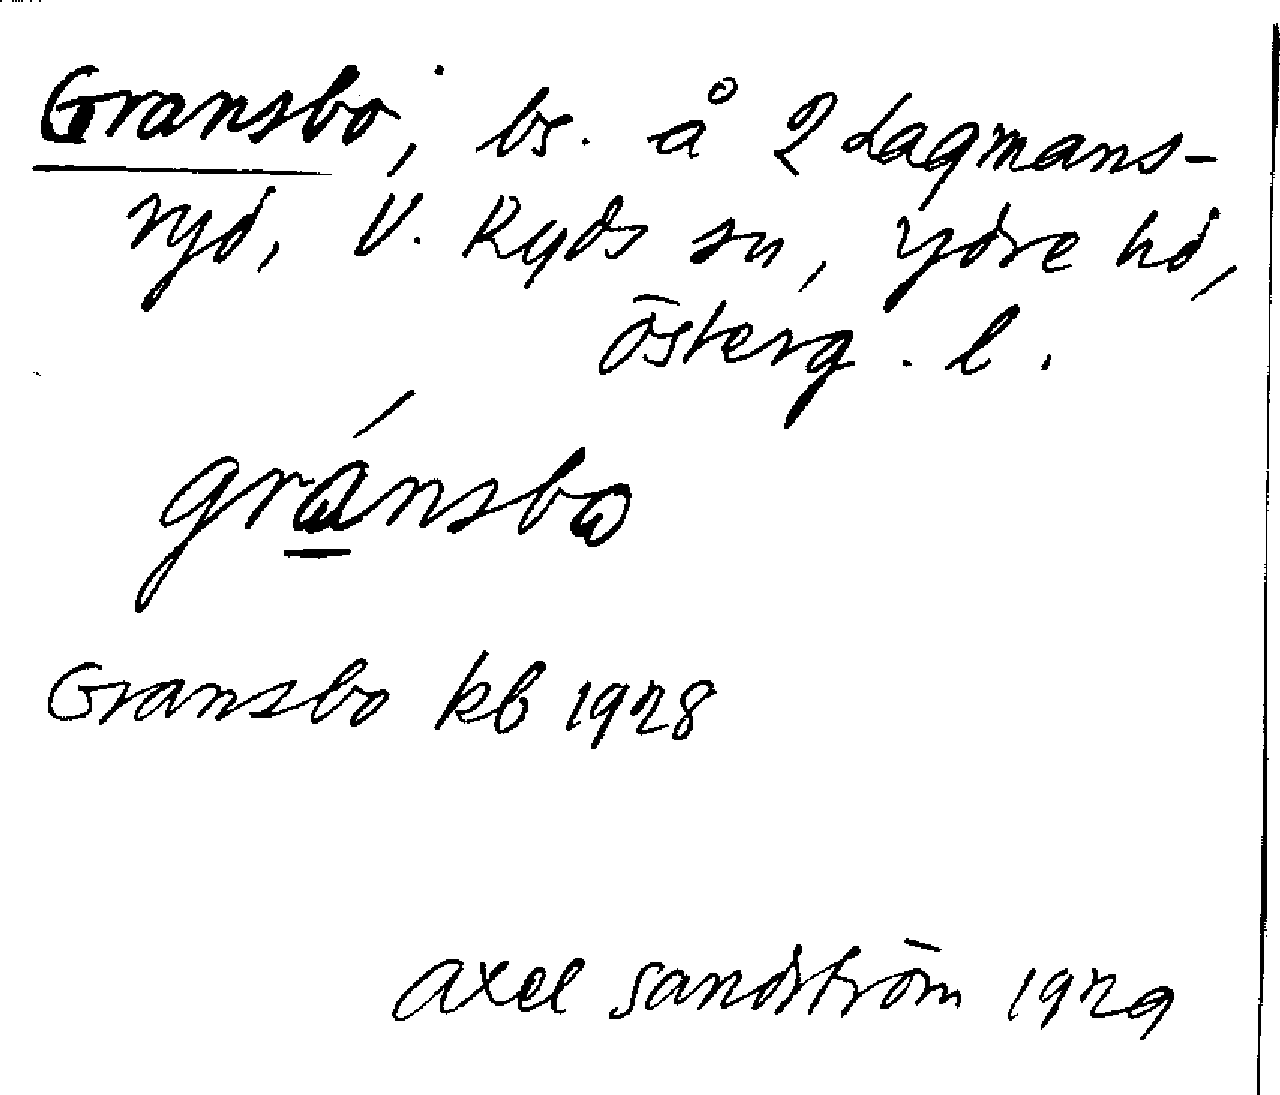 Gransbo, bs. å 2 Lagmans-
ryd, V. Ryds sn, Ydre hd,
Österg. l.
gránsbω
Gransbo kb 1928
Axel Sandström 1929